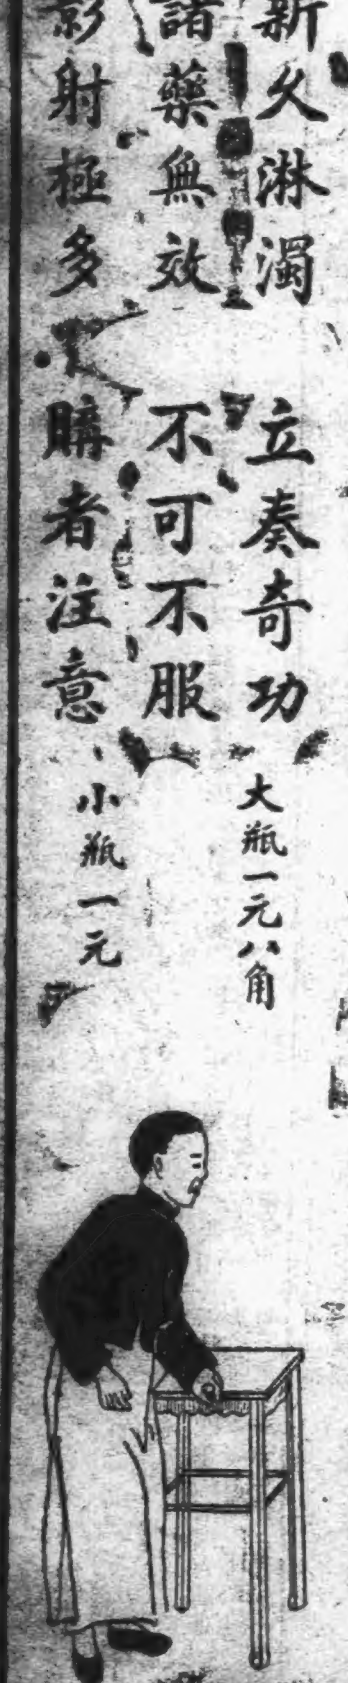 新久淋濁 立奏奇功
大瓶一元八角
諸藥無效 不可不服
影射極多 購者注意
小瓶一元